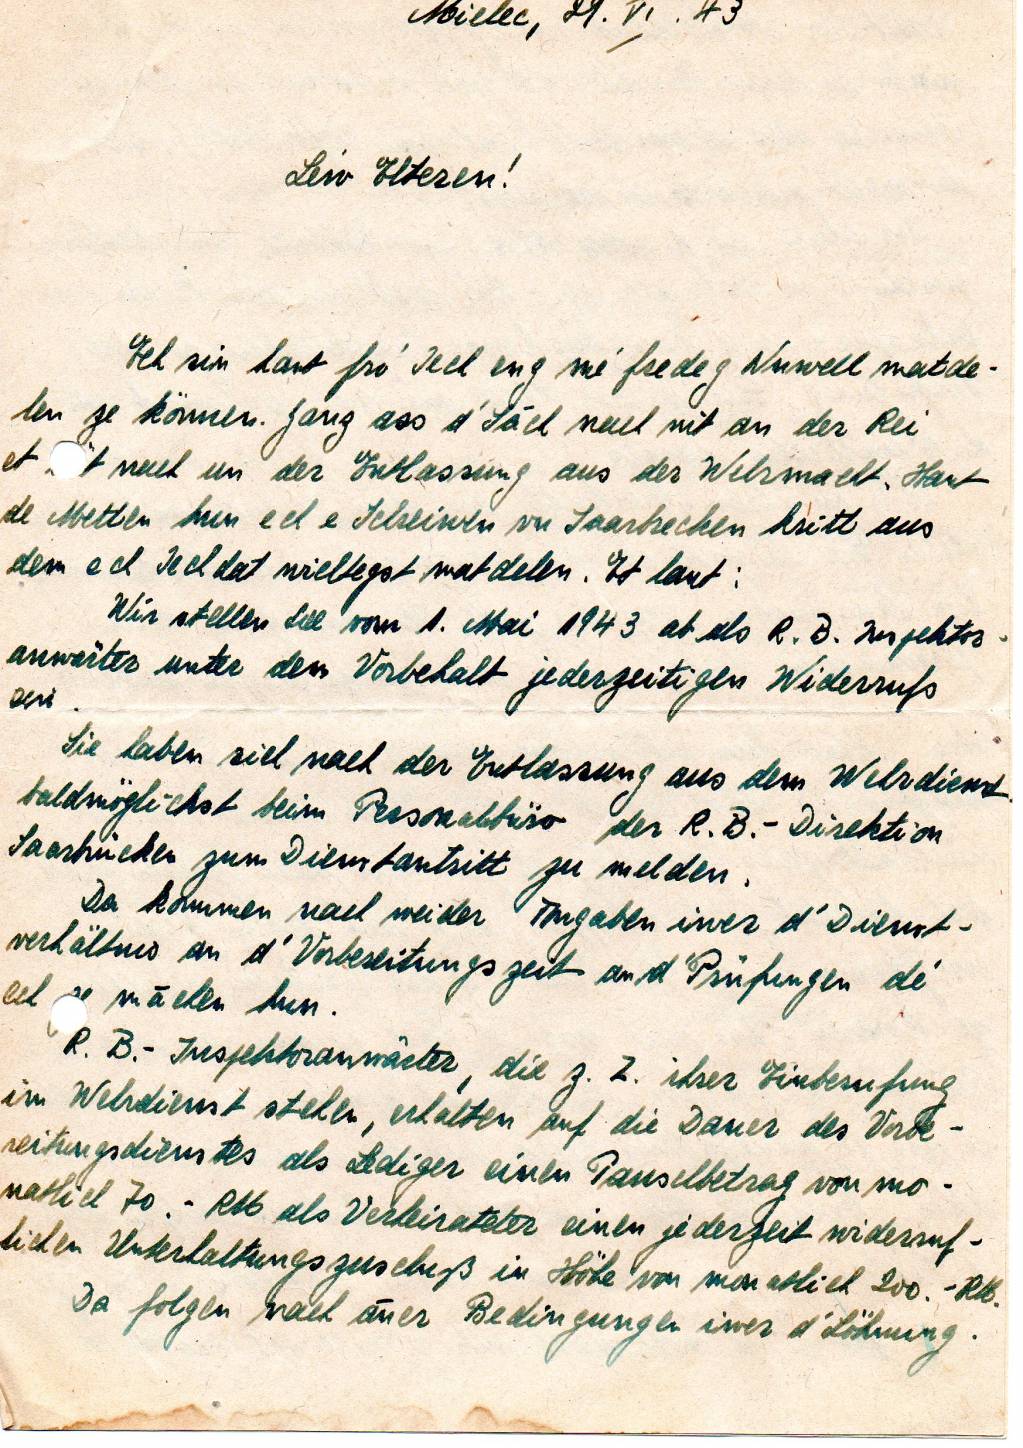 Mielec, 29. VI. 43
Léiw Elteren!
Ech sin haut fro' Iech eng mé fredeg Nuwell matde-
len ze können. Ganz ass d'Sāch nach nit an der Rei
et t nach un der Entlassung aus der Wehrmacht. Haut
de Metten hun ech e Schreiwen vu Saarbrecken kritt aus
dem ech Iech dat wichtegst matdelen. Et laut:
Wir stellen Sie vom 1. Mai 1943 ab als R. B. Inspektor-
anwärter unter dem Vorbehalt jederzeitigen Widerrufs
ein.
Sie haben sich nach der Entlassung aus dem Wehrdienst
baldmöglichst beim Personalbüro der R. B.- Direktion
Saarbrücken zum Dienstantritt zu melden.
Da kommen nach weider Angaben iwer d'Dienst-
verhältnis an d'Vorbereitungszeit an d'Prüfungen dé
ech ze māchen hun.
R. B.- Inspektoranwärter, die z. Z. ihrer Einberufung
im Wehrdienst stehen, erhalten auf die Dauer des Vorbe-
reitungsdienstes als Lediger einen Pauschbetrag von mo-
natlich 70.- RM als Verheirateter einen jederzeit widerruf-
lichen Unterhaltungszuschuß in Höhe von monatlich 200.- RM.
Da folgen nach āner Bedingungen iwer d'Löhnung.